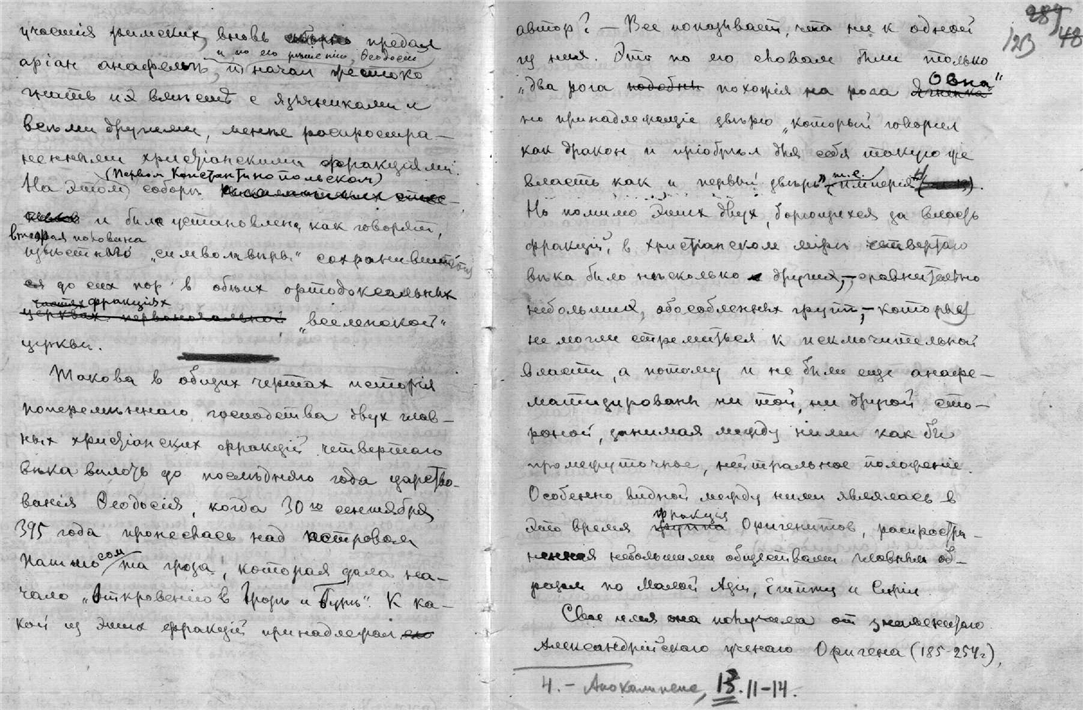 участiя римских, вновь предал
арiан анафемѣ, и по его рѣшенiю, Ѳеодосiй начал жестоко
гнать их вмѣстѣ с язычниками и
всѣми другими, менѣе распростра-
ненными христiанскими фракцiями.
На этом соборѣ (Первом Константинопольском)
и была установлена, как говорят,
вторая половина извѣстнаго „символа вѣры“ сохранившаяся
до сих пор в обѣих ортодоксальных
фракцiях „вселенской“
церкви.
Такова в общих чертах исторiя
поперемѣннаго господства двух глав-
ных христiанских фракцiй четвертаго
вѣка вплоть до послѣдняго года царство-
ванiя Ѳеодосiя, когда 30го сентября
395 года пронеслась над островом
Патмосом та гроза, которая дала на-
чало „Откровенiю в Грозѣ и Бурѣ“. К ка-
кой из этих фракцiй принадлежал
289
123 48
автор? — Все показывает, что ни к одной
из них. Это по его словам были только
„два рога похожiя на рога Овна“
но принадлежащiе звѣрю „который говорил
как дракон и прiобрѣл для себя такую же
власть как и первый звѣрь“, т.е. имперiя
Но помимо этих двух, борющихся за власть
фракцiй, в христiанском мiрѣ четвертаго
вѣка было нѣсколько других, — сравнительно
небольших, обособленных групп, — которыя
не могли стремиться к исключительной
власти, а потому и не были еще анафе-
матизированы ни той, ни другой сто-
роной, занимая между ними как бы
промежуточное, нейтральное положенiе.
Особенно видной между ними являлась в
это время фракцiя Оригенитов, распростра-
ненная небольшими обществами главным об-
разом по Малой Азiи, Египту и Сирiи.
Свое имя она получила от знаменитаго
Александрiйскаго ученаго Оригена (185-254 г.),
4. — Апокалипсис, 13. 11-14.